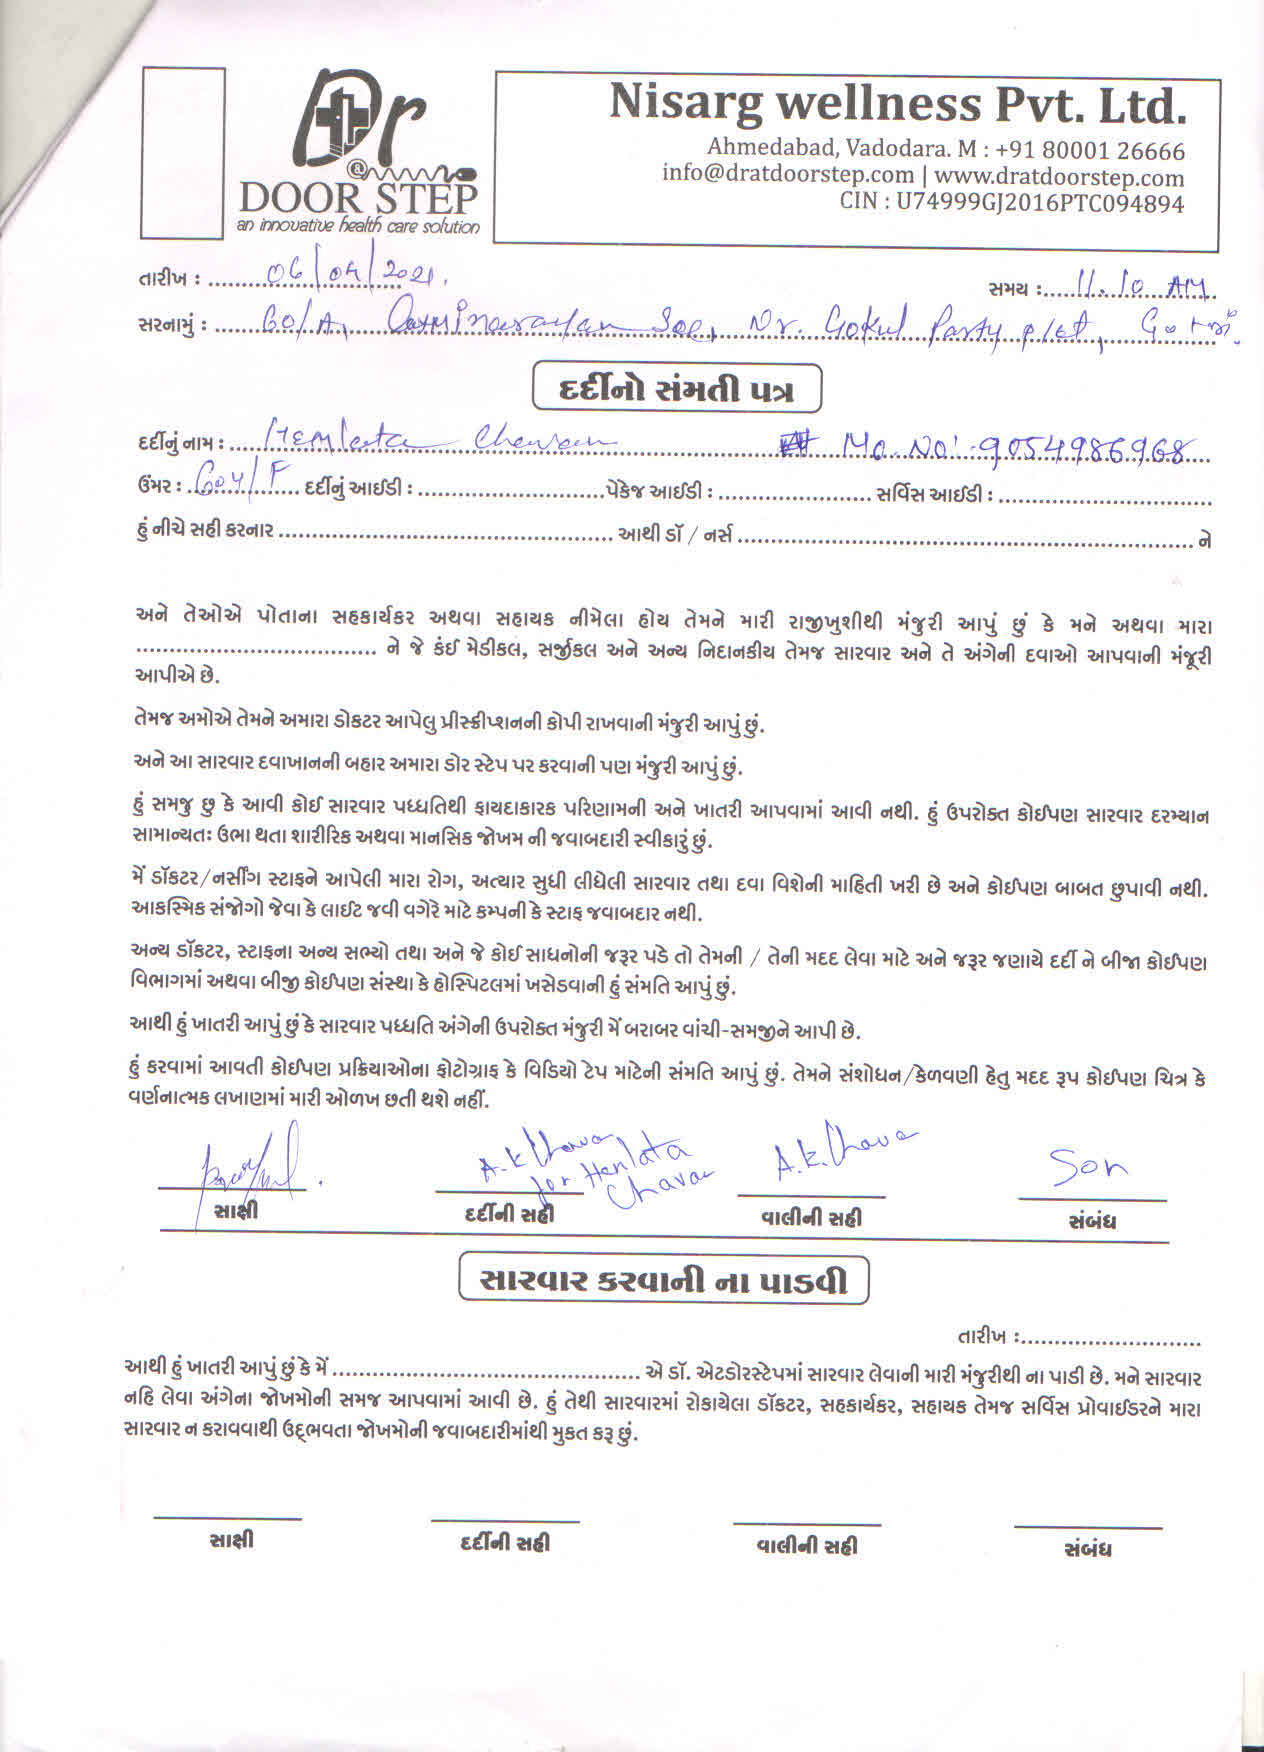 Dr
@
DOOR STEP
an innovative health care solution
Nisarg wellness Pvt. Ltd.
Ahmedabad, Vadodara. M : +91 80001 26666
info@dratdoorstep.com | www.dratdoorstep.com
CIN : U74999GJ2016PTC094894
તારીખ : 06/04/2021.
સમય : 11.10 AM
સરનામું : 60/A, Laxminarayan Soc, Nr. Gokul Party plot, Gotri.
દર્દીનો સંમતી પત્ર
દર્દીનું નામ : Hemlata Chavan Mo. No: 9054986968
ઉંમર : 60y/F દર્દીનું આઈડી : પેકેજ આઈડી : સર્વિસ આઈડી :
હું નીચે સહી કરનાર આથી ડૉ / નર્સ ને
અને તેઓએ પોતાના સહકાર્યકર અથવા સહાયક નીમેલા હોય તેમને મારી રાજીખુશીથી મંજુરી આપું છું કે મને અથવા મારા
ને જે કંઈ મેડીકલ, સર્જીકલ અને અન્ય નિદાનકીય તેમજ સારવાર અને તે અંગેની દવાઓ આપવાની મંજૂરી
આપીએ છે.
તેમજ અમોએ તેમને અમારા ડોકટર આપેલુ પ્રીસ્ક્રીપ્શનની કોપી રાખવાની મંજુરી આપું છું.
અને આ સારવાર દવાખાનની બહાર અમારા ડોર સ્ટેપ પર કરવાની પણ મંજુરી આપું છું.
હું સમજુ છુ કે આવી કોઈ સારવાર પધ્ધતિથી ફાયદાકારક પરિણામની અને ખાતરી આપવામાં આવી નથી. હું ઉપરોક્ત કોઈપણ સારવાર દરમ્યાન
સામાન્યતઃ ઉભા થતા શારીરિક અથવા માનસિક જોખમ ની જવાબદારી સ્વીકારું છું.
મેં ડૉકટર/નર્સીંગ સ્ટાફને આપેલી મારા રોગ, અત્યાર સુધી લીધેલી સારવાર તથા દવા વિશેની માહિતી ખરી છે અને કોઈપણ બાબત છુપાવી નથી.
આકસ્મિક સંજોગો જેવા કે લાઈટ જવી વગેરે માટે કમ્પની કે સ્ટાફ જવાબદાર નથી.
અન્ય ડૉકટર, સ્ટાફના અન્ય સભ્યો તથા અને જે કોઈ સાધનોની જરૂર પડે તો તેમની / તેની મદદ લેવા માટે અને જરૂર જણાયે દર્દી ને બીજા કોઈપણ
વિભાગમાં અથવા બીજી કોઈપણ સંસ્થા કે હોસ્પિટલમાં ખસેડવાની હું સંમતિ આપું છું.
આથી હું ખાતરી આપું છું કે સારવાર પધ્ધતિ અંગેની ઉપરોક્ત મંજુરી મેં બરાબર વાંચી-સમજીને આપી છે.
હું કરવામાં આવતી કોઈપણ પ્રક્રિયાઓના ફોટોગ્રાફ કે વિડિયો ટેપ માટેની સંમતિ આપું છું. તેમને સંશોધન/કેળવણી હેતુ મદદ રૂપ કોઈપણ ચિત્ર કે
વર્ણનાત્મક લખાણમાં મારી ઓળખ છતી થશે નહીં.
A.k Chavan for Hemlata Chavan A.K.Chava Son
સાક્ષી દર્દીની સહી વાલીની સહી સંબંધ
સારવાર કરવાની ના પાડવી
તારીખ :
આથી હું ખાતરી આપું છું કે મેં એ ડૉ. એટડોરસ્ટેપમાં સારવાર લેવાની મારી મંજુરીથી ના પાડી છે. મને સારવાર
નહિ લેવા અંગેના જોખમોની સમજ આપવામાં આવી છે. હું તેથી સારવારમાં રોકાયેલા ડૉકટર, સહકાર્યકર, સહાયક તેમજ સર્વિસ પ્રોવાઈડરને મારા
સારવાર ન કરાવવાથી ઉદ્ભવતા જોખમોની જવાબદારીમાંથી મુકત કરૂ છું.
સાક્ષી દર્દીની સહી વાલીની સહી સંબંધ